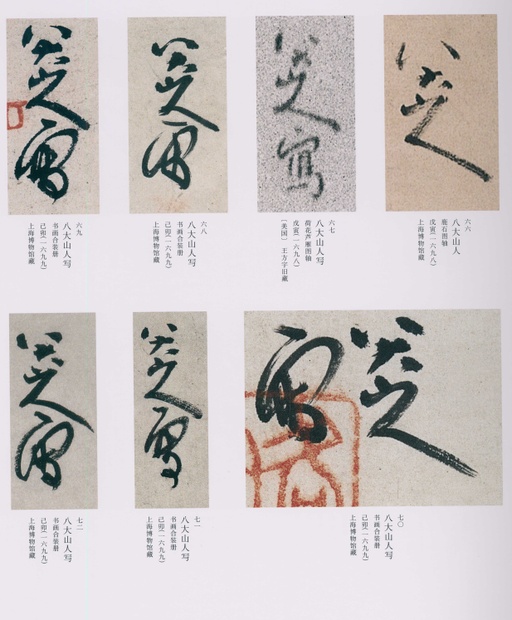 八大山人
六六
八大山人
鹿石图轴
戊寅(一六九八)
上海博物馆藏
八大山人写
六七
八大山人写
荷花芦雁图轴
戊寅(一六九八)
(美国) 王方宇旧藏
八大山人写
六八
八大山人写
书画合装册
己卯(一六九九)
上海博物馆藏
八大山人写
六九
八大山人写
书画合装册
己卯(一六九九)
上海博物馆藏
八大山人写
七〇
八大山人写
书画合装册
己卯(一六九九)
上海博物馆藏
八大山人写
七一
八大山人写
书画合装册
己卯(一六九九)
上海博物馆藏
八大山人写
七二
八大山人写
书画合装册
己卯(一六九九)
上海博物馆藏